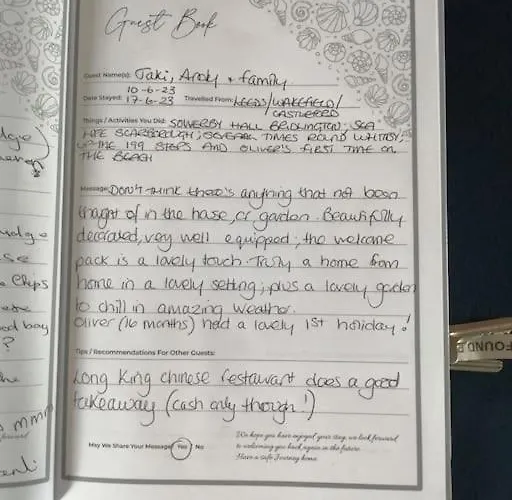 Guest Book
Guest Name(s): Jaki, Andy + family
10-6-23
Date Stayed: 17-6-23 Travelled From: LEEDS/WAKEFIELD/
CASTLEFORD
Things / Activities You Did: SOWERBY HALL BRIDLINGTON; SEA
LIFE SCARBOROUGH; SEVERAL TIMES ROUND WHITBY;
UP THE 199 STEPS AND OLIVER'S FIRST TIME ON
THE BEACH
Message: Don't think there's anything that not been
thaght of in the hase, or garden. Beautifully
decorated, very well equipped; the welcome
pack is a lovely touch. Truly a home from
home in a lovely setting; plus a lovely garden
to chill in amazing weather.
Oliver (16 months) had a lovely 1st holiday!
Tips / Recommendations For Other Guests:
Long King chinese restaurant does a good
takeaway (cash only though!)
May We Share Your Message? Yes / No
We hope you have enjoyed your stay, we look forward
to welcoming you back again in the future.
Have a safe Journey home
Chips
bay
?
mmm
FOUND